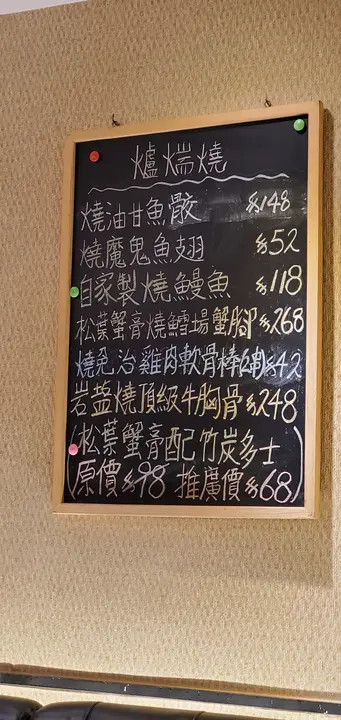 爐端燒
燒油甘魚骹 $148
燒魔鬼魚翅 $52
自家製燒鰻魚 $118
松葉蟹膏燒鱈場蟹腳 $268
燒免治雞肉軟骨棒 $42
岩盬燒頂級牛胸骨 $248
(松葉蟹膏配竹炭多士
原價$98 推廣價$68)